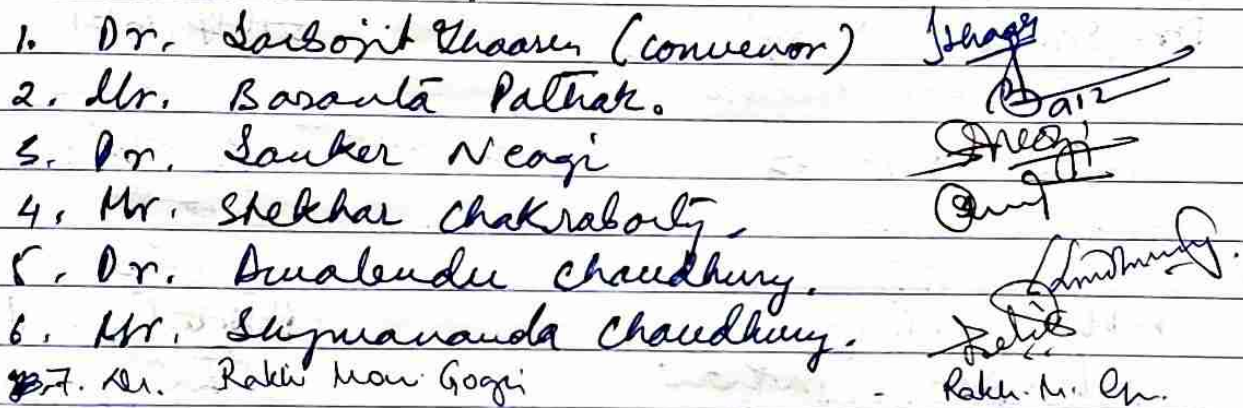 1. Dr. Sarbojit Thaosen (convenor)
2. Mr. Basanta Pathak.
3. Dr. Sanker Neogi Sneogi
4. Mr. Shekhar Chakraborty.
5. Dr. Amalendu Chaudhury. Chaudhury.
6. Mr. Chaudhury.
7. Dr. Rakhi Moni Gogoi - Rakhi. M.